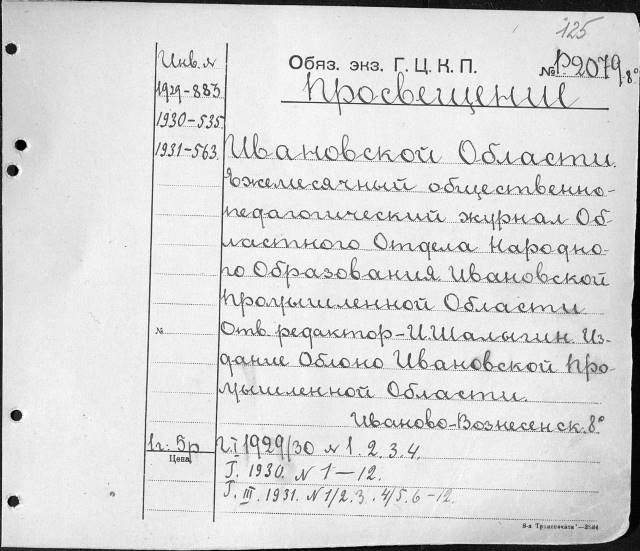 125
Инв. №
Обяз. экз. Г. Ц. К. П.
№ Р2079 8°
Просвещение
1929-883
1930-535
1931-563
Ивановской Области.
Ежемесячный общественно-
педагогический журнал Об-
ластного Отдела Народно-
го Образования Ивановской
Промышленной Области
№
Отв. редактор-И. Шалыгин. Из-
дание Облоно Ивановской Про-
мышленной Области.
Иваново-Вознесенск. 8°
1г. 5р
Цена
Г. I 1929/30 № 1. 2. 3. 4.
Г. 1930. № 1—12.
Г. III. 1931. № 1/2. 3. 4/5. 6-12.